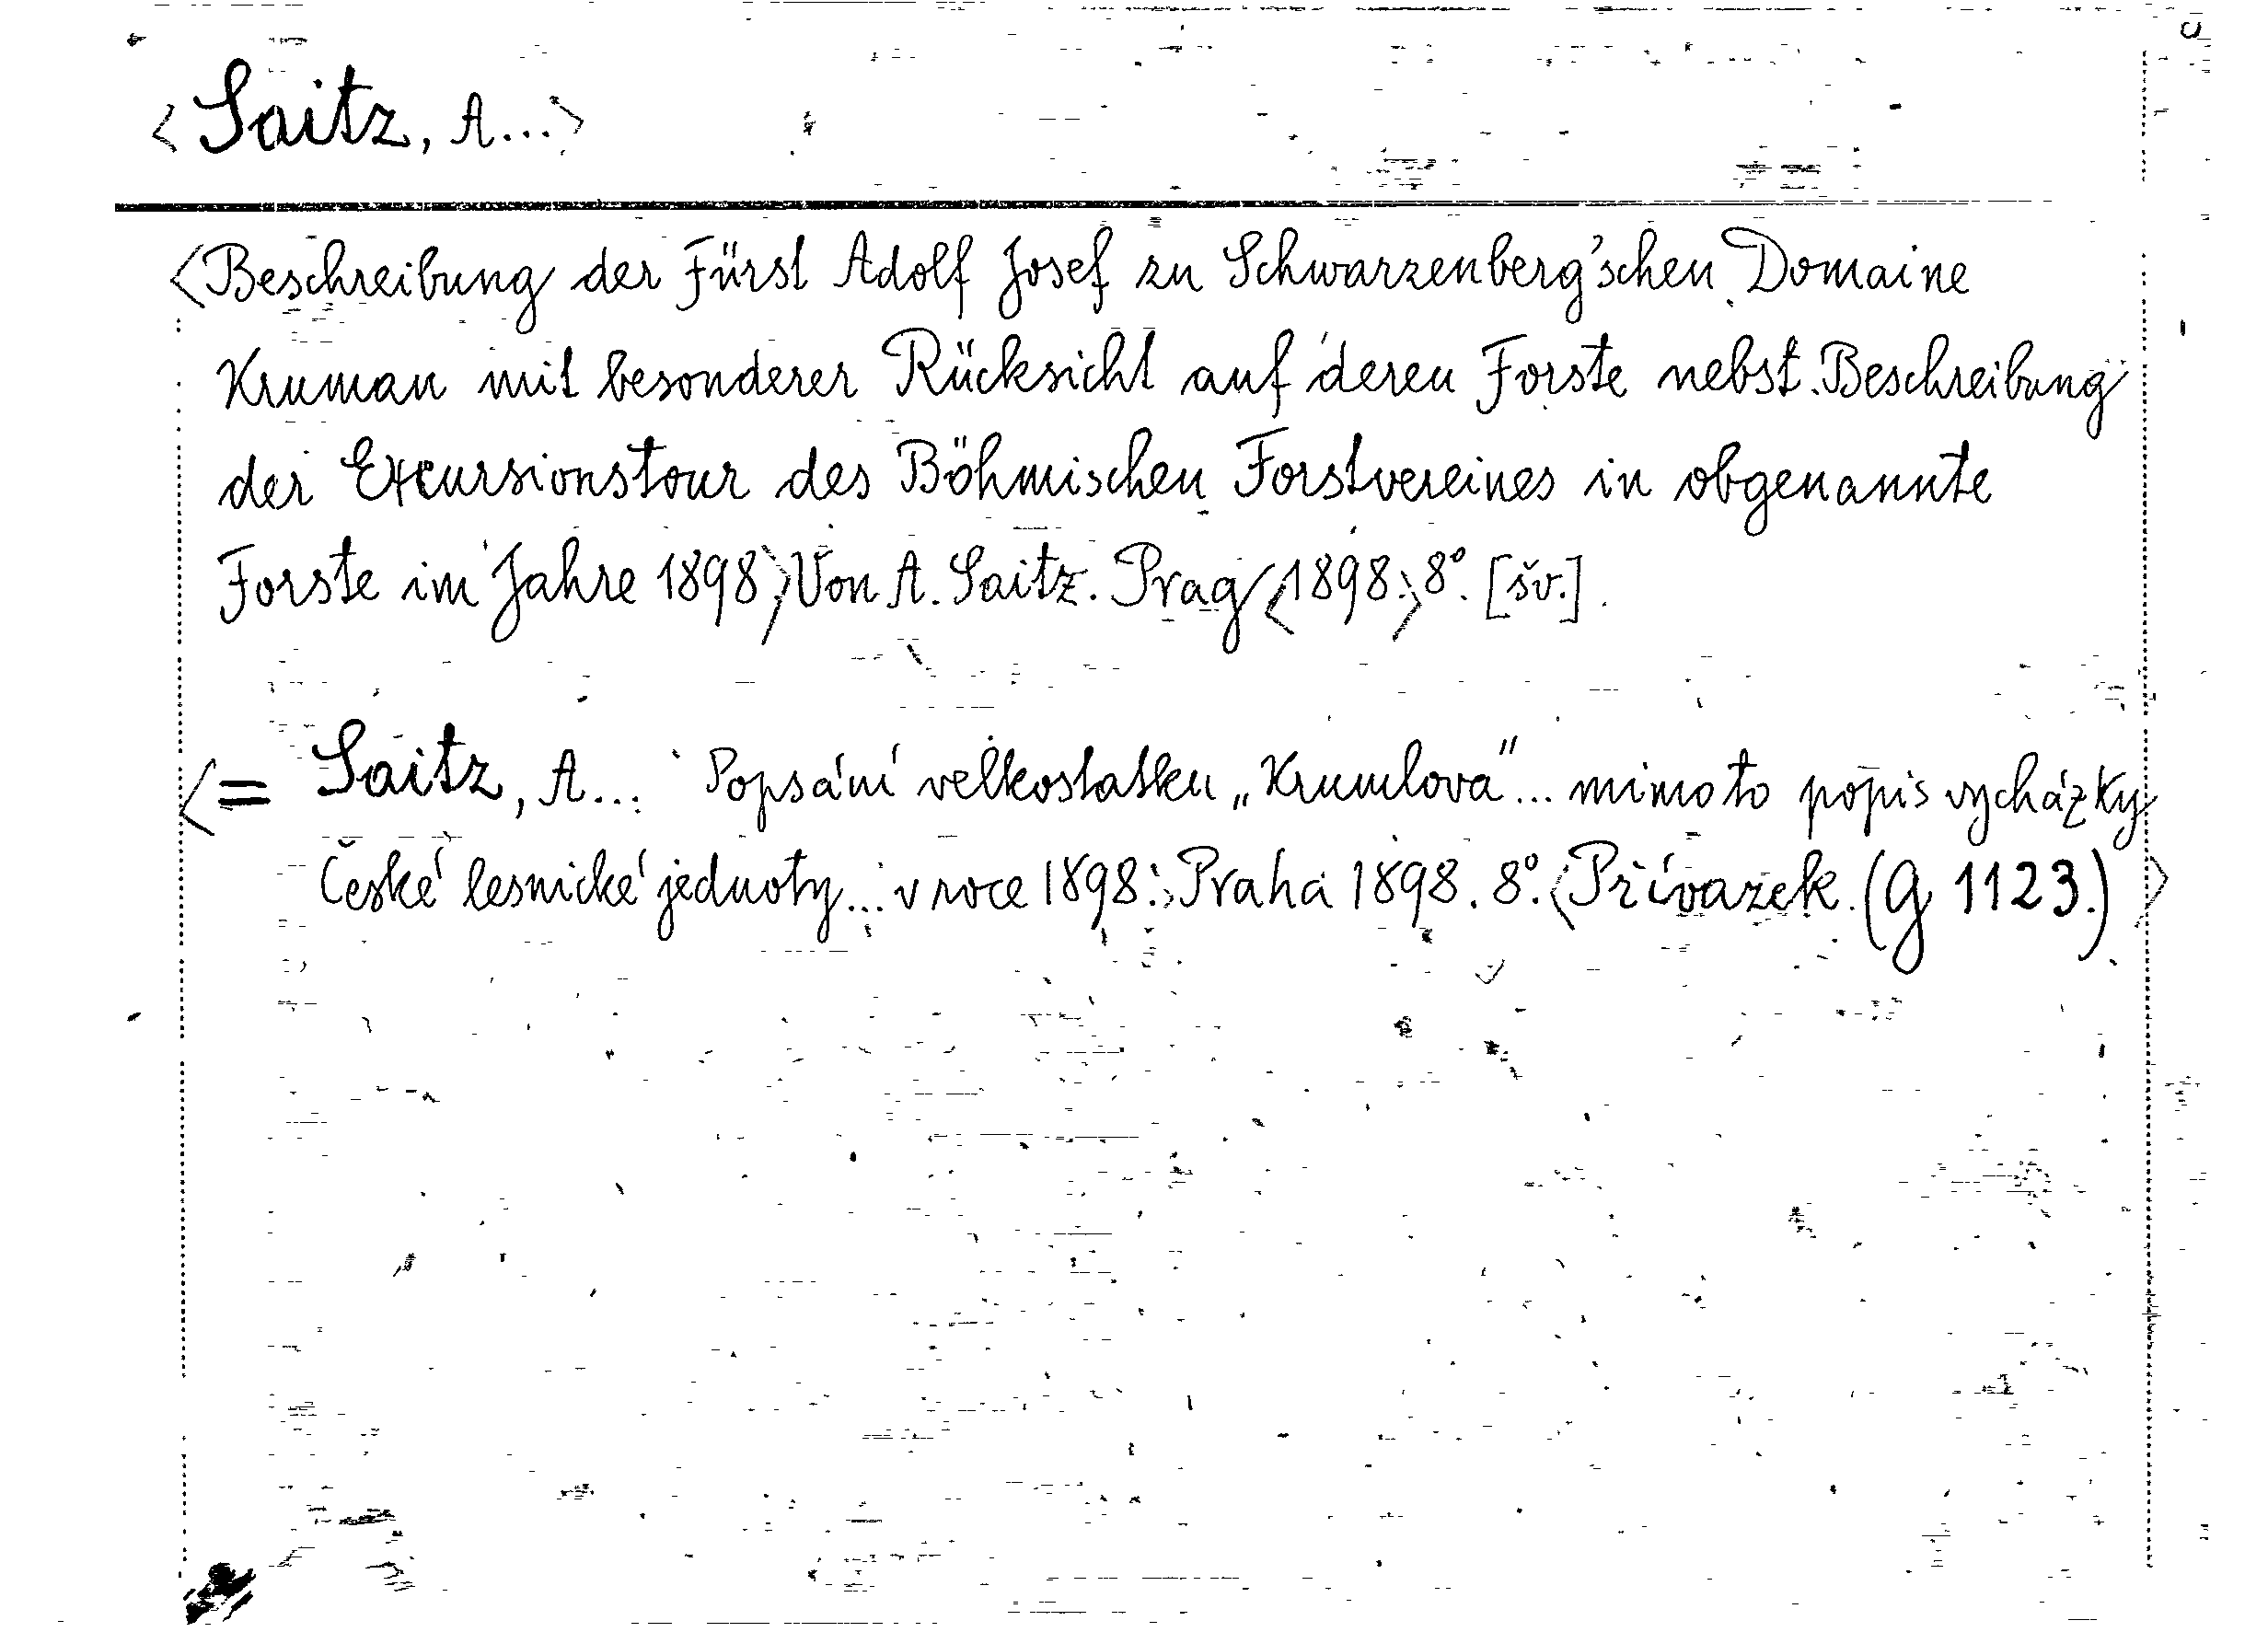 <Saitz, A...>
<Beschreibung der Fürst Adolf Josef zu Schwarzenberg'schen Domaine
Kruman mit besonderer Rücksicht auf deren Forste nebst Beschreibung
der Excursionstour des Böhmischen Forstvereines in obgenannte
Forste im Jahre 1898> Von A. Saitz. Prag <1898.> 8°. [šv.].
<= Saitz, A... Popsání velkostatku „Krumlova“... mimo to popis vycházky
České lesnické jednoty... v roce 1898.> Praha 1898. 8°. <Přívazek. (G 1123.)>